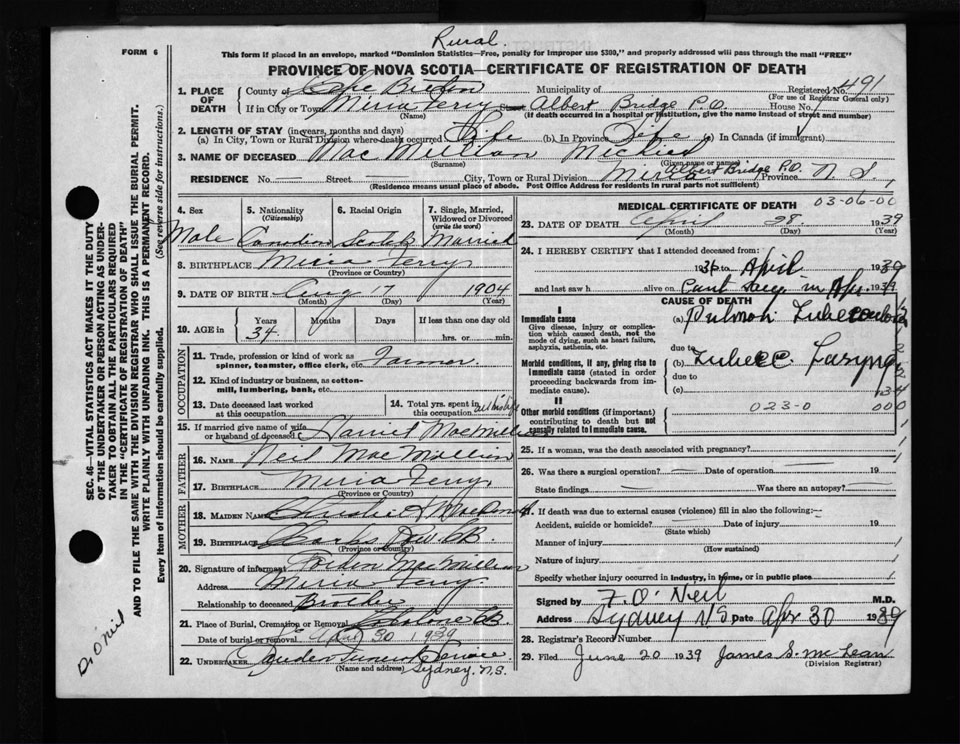 Rural.
FORM 6
This form if placed in an envelope, marked "Dominion Statistics—Free, penalty for improper use $300," and properly addressed will pass through the mail "FREE"
PROVINCE OF NOVA SCOTIA—CERTIFICATE OF REGISTRATION OF DEATH
1. PLACE OF DEATH
County of Cape Breton Municipality of Registered No. 491
(For use of Registrar General only)
If in City or Town Miria Ferry Albert Bridge P.O. House No.
(Name) (If death occurred in a hospital or institution, give the name instead of street and number)
2. LENGTH OF STAY (in years, months and days)
(a) In City, Town or Rural Division where death occurred Life (b) In Province Life (c) In Canada (if immigrant)
3. NAME OF DECEASED Mac Millian
(Surname) (Given name or names)
Albert Bridge P.O.
RESIDENCE No. — Street — City, Town or Rural Division Miria Province N S
(Residence means usual place of abode. Post Office Address for residents in rural parts not sufficient)
4. Sex
Male
5. Nationality (Citizenship)
Canadian
6. Racial Origin
Scotch
7. Single, Married, Widowed or Divorced (write the word)
Married
8. BIRTHPLACE Miria Ferry
(Province or Country)
9. DATE OF BIRTH Aug 7 1904
(Month) (Day) (Year)
10. AGE in
Years Months Days If less than one day
34 hrs. or min.
OCCUPATION
11. Trade, profession or kind of work as spinner, teamster, office clerk, etc. Farmer
12. Kind of industry or business, as cotton-mill, lumbering, bank, etc.
13. Date deceased last worked at this occupation
14. Total yrs. spent in this occupation all his life
15. If married give name of wife or husband of deceased Harriet MacMillian
FATHER
16. NAME Neil MacMillian
17. BIRTHPLACE Miria Ferry
(Province or Country)
MOTHER
18. MAIDEN NAME
19. BIRTHPLACE C.B.
(Province or Country)
20. Signature of informant MacMillian
Address Miria Ferry
Relationship to deceased Brother
21. Place of Burial, Cremation or Removal C.B.
Date of burial or removal April 30 1939
22. UNDERTAKER Funeral Service
(Name and address) Sydney, N.S.
MEDICAL CERTIFICATE OF DEATH
03-06-00
23. DATE OF DEATH April 28 1939
(Month) (Day) (Year)
24. I HEREBY CERTIFY that I attended deceased from:
1936 to April 1939
and last saw h alive on Cant Say in Apr. 1939
CAUSE OF DEATH
I
Immediate cause
Give disease, injury or complication which caused death, not the mode of dying, such as heart failure, asphyxia, asthenia, etc.
(a)
due to
Morbid conditions, if any, giving rise to immediate cause (stated in order proceeding backwards from immediate cause).
(b)
due to
(c)
II
Other morbid conditions (if important) contributing to death but not causally related to immediate cause.
023-0 000
25. If a woman, was the death associated with pregnancy?
26. Was there a surgical operation? — Date of operation 19
State findings Was there an autopsy?
27. If death was due to external causes (violence) fill in also the following:—
Accident, suicide or homicide? Date of injury 19
(State which)
Manner of injury
(How sustained)
Nature of injury
Specify whether injury occurred in industry, in home, or in public place
Signed by F. O'Neil M.D.
Address Sydney N S Date Apr 30 1939
28. Registrar's Record Number
29. Filed June 20 1939 James S. McLean
(Division Registrar)
SEC. 46—VITAL STATISTICS ACT MAKES IT THE DUTY
OF THE UNDERTAKER OR PERSON ACTING AS UNDER-
TAKER TO OBTAIN ALL THE PARTICULARS REQUIRED
IN THE "CERTIFICATE OF REGISTRATION OF DEATH"
AND TO FILE THE SAME WITH THE DIVISION REGISTRAR WHO SHALL ISSUE THE BURIAL PERMIT.
WRITE PLAINLY WITH UNFADING INK. THIS IS A PERMANENT RECORD.
Every item of information should be carefully supplied. (See reverse side for instructions.)